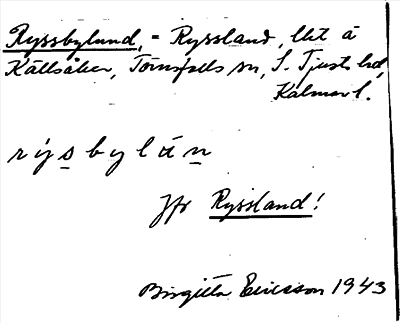 Ryssbylund, = Ryssland, lht å
Källsåker, Törnsfalls sn, S. Tjusts hd,
Kalmar l.
rýsbylun
Jfr Ryssland!
Birgitta Ericsson 1943